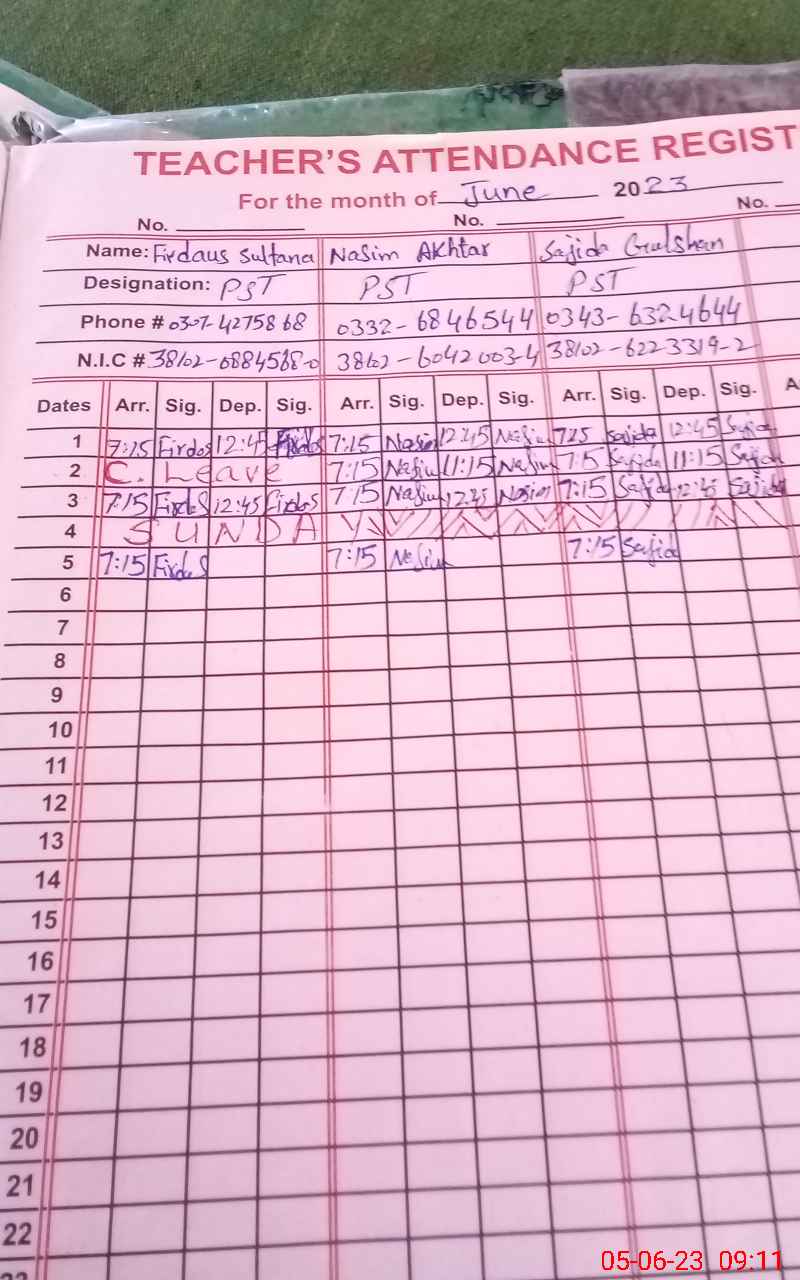 TEACHER'S ATTENDANCE REGIST
For the month of June 2023
No. No. No.
Name: Firdaus Sultana Nasim Akhtar Sajida Gulshan
Designation: PST PST PST
Phone # 0307-4275868 0332-6846544 0343-6324644
N.I.C # 38102-0884568-0 38102-6042003-4 38102-6223319-2
Dates Arr. Sig. Dep. Sig. Arr. Sig. Dep. Sig. Arr. Sig. Dep. Sig. A
1 7:15 Firdos 12:45 Firdos 7:15 Nasim 12:45 Nasim 7:15 Sajida 12:45 Sajida
2 C. Leave 7:15 Nasim 11:15 Nasim 7:15 Sajida 11:15 Sajida
3 7:15 Firdos 12:45 Firdos 7:15 Nasim 12:45 Nasim 7:15 Sajida 12:45 Sajida
4 SUNDAY
5 7:15 Firdos 7:15 Nasim 7:15 Sajida
6
7
8
9
10
11
12
13
14
15
16
17
18
19
20
21
22
23
05-06-23 09:11